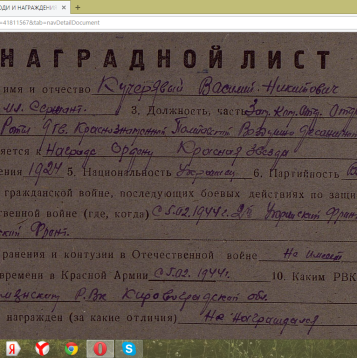 ОДИ И НАГРАЖДЕНИ × +
=41811567&tab=navDetailDocument
НАГРАДНОЙ ЛИСТ
имя и отчество Кучерявый Василий Никитович
мл. Сержант. 3. Должность, часть Зап. Ком. Отд.
Роты Гв. Краснознаменной Воздушно Десантной
яется к Награде Ордена Красная Звезда
ения 1924 5. Национальность 6. Партийность
гражданской войне, последующих боевых действиях по защи
твенной войне (где, когда) С 5.02.1944г. 2й Украинский Фрон
ский Фронт.
ранения и контузии в Отечественной войне Не имеет
времени в Красной Армии С 5.02. 1944г. 10. Каким РВК
РВК Кировоградской обл.
награжден (за какие отличия) Не Награждался